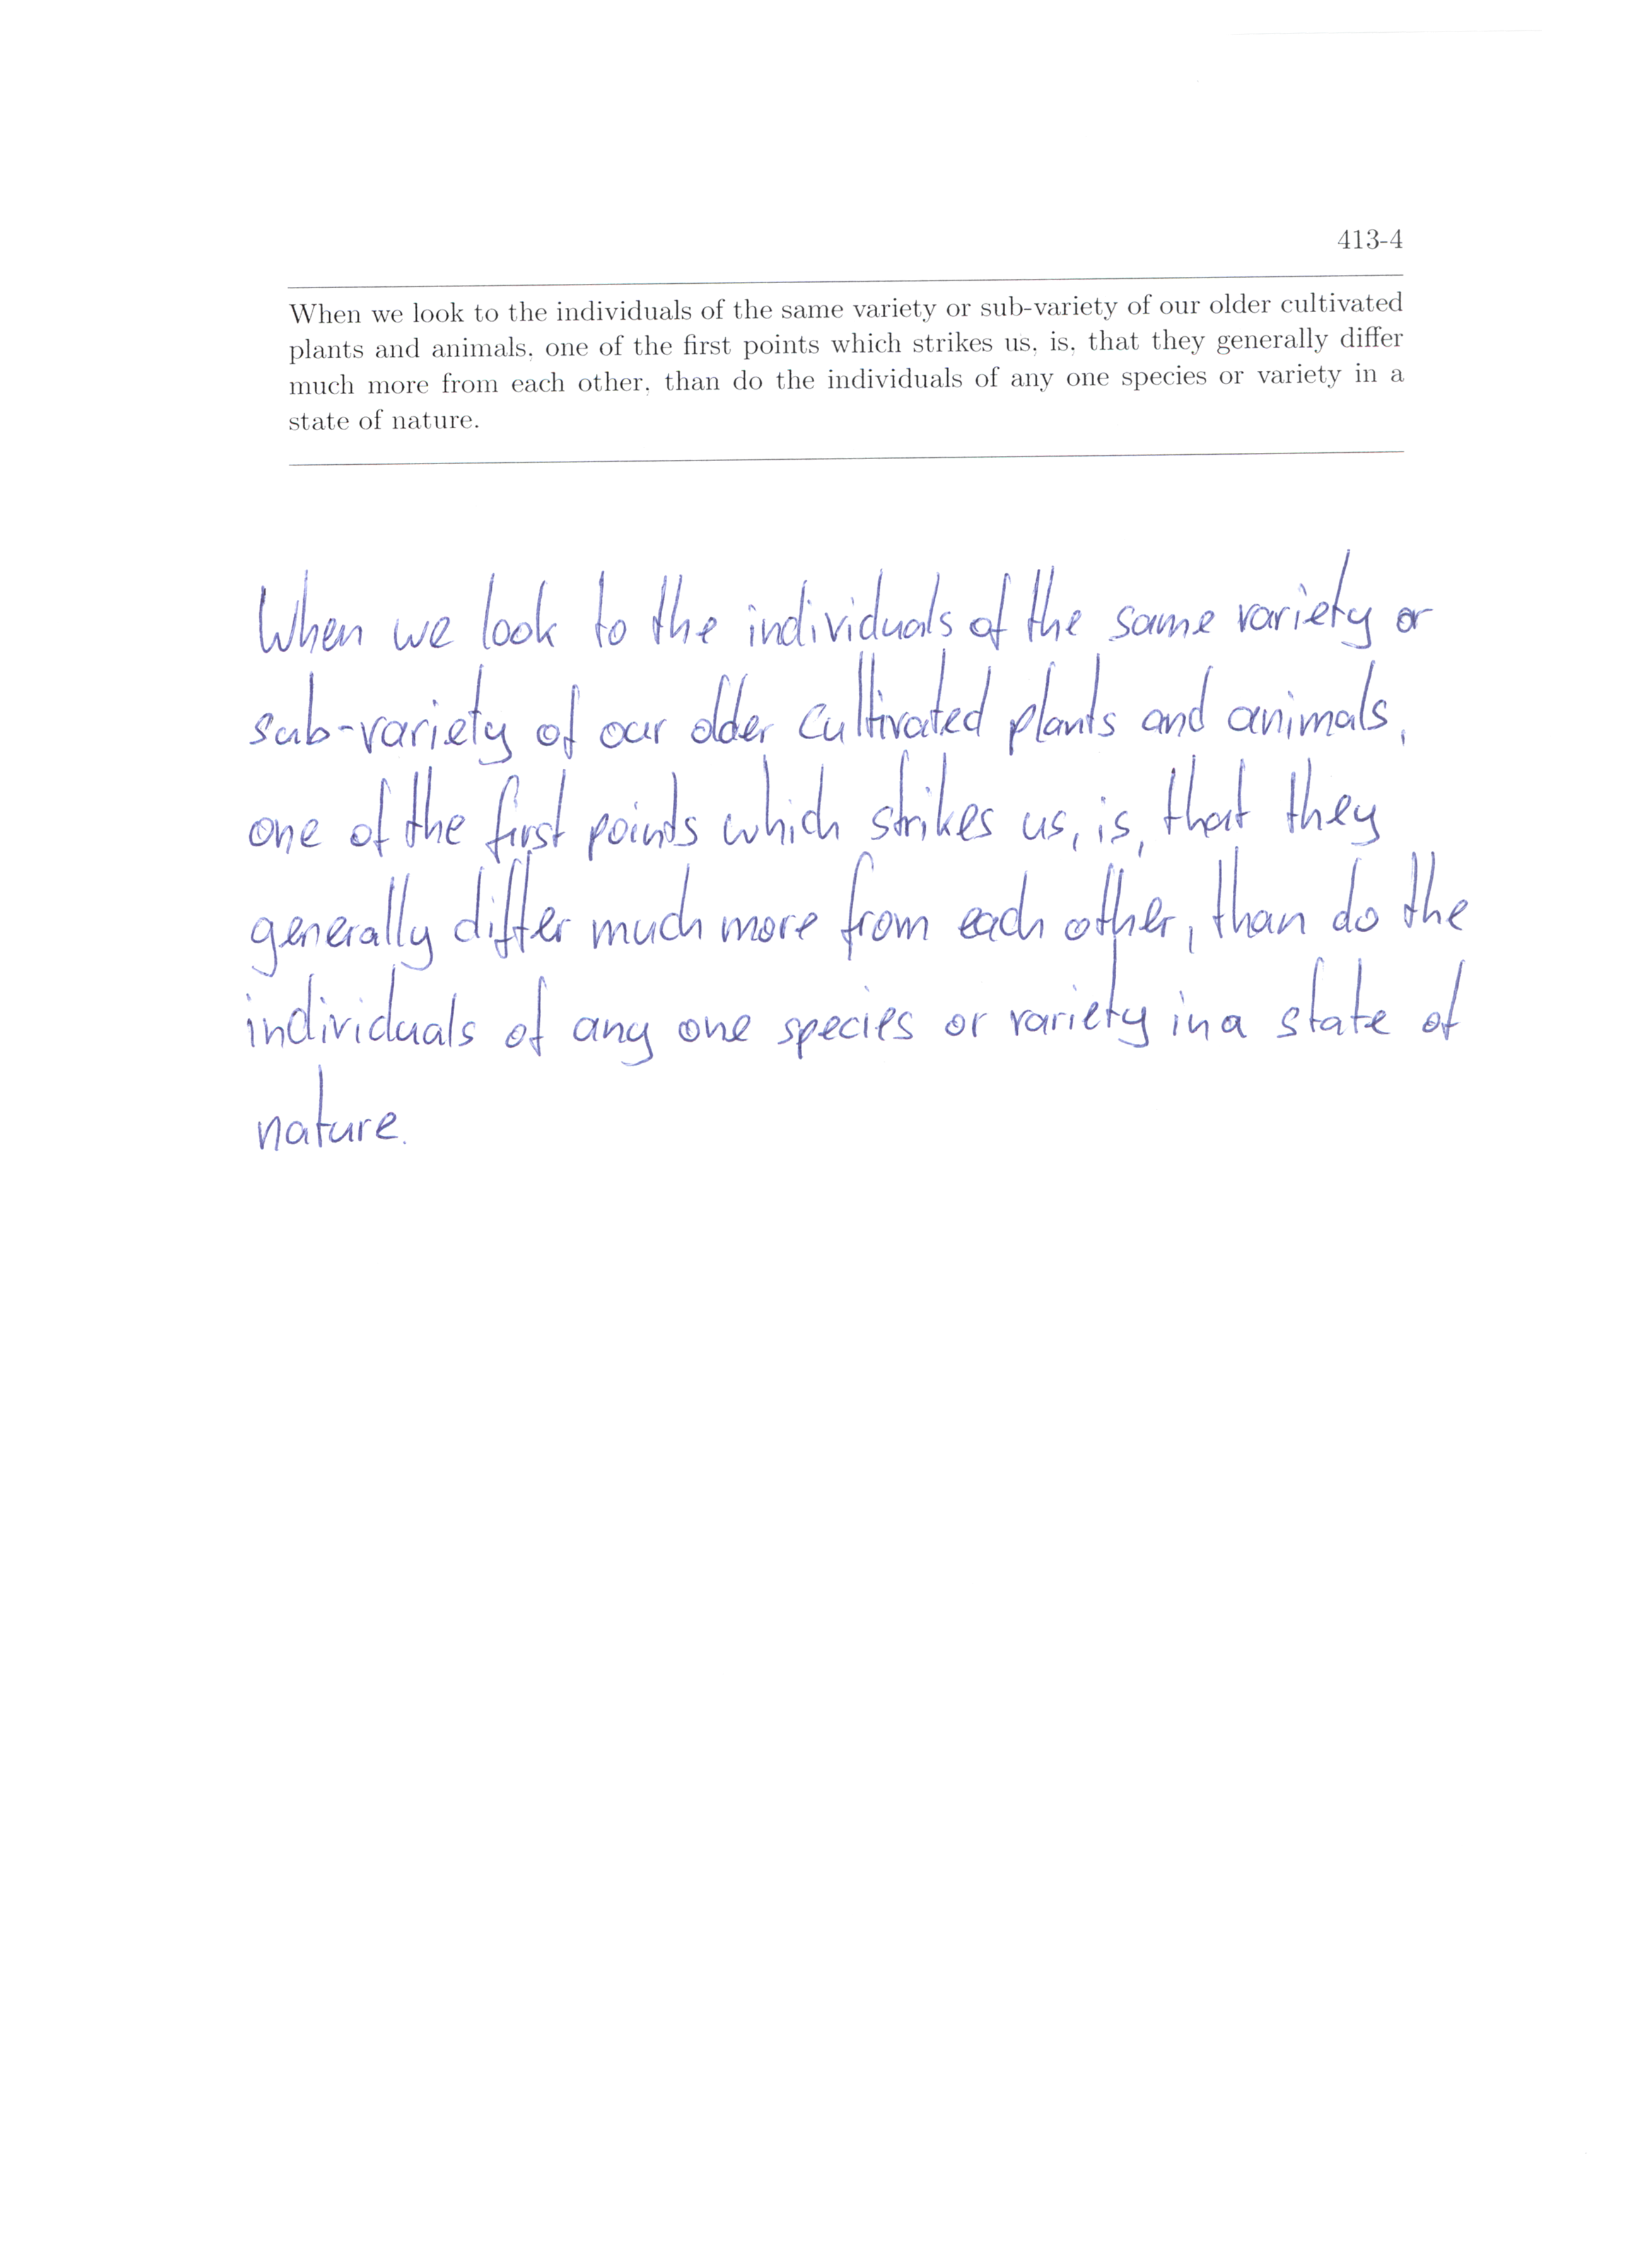 413-4
When we look to the individuals of the same variety or sub-variety of our older cultivated
plants and animals, one of the first points which strikes us, is, that they generally differ
much more from each other, than do the individuals of any one species or variety in a
state of nature.
When we look to the individuals of the same variety or
sub-variety of our older cultivated plants and animals,
one of the first points which strikes us, is, that they
generally differ much more from each other, than do the
individuals of any one species or variety in a state of
nature.